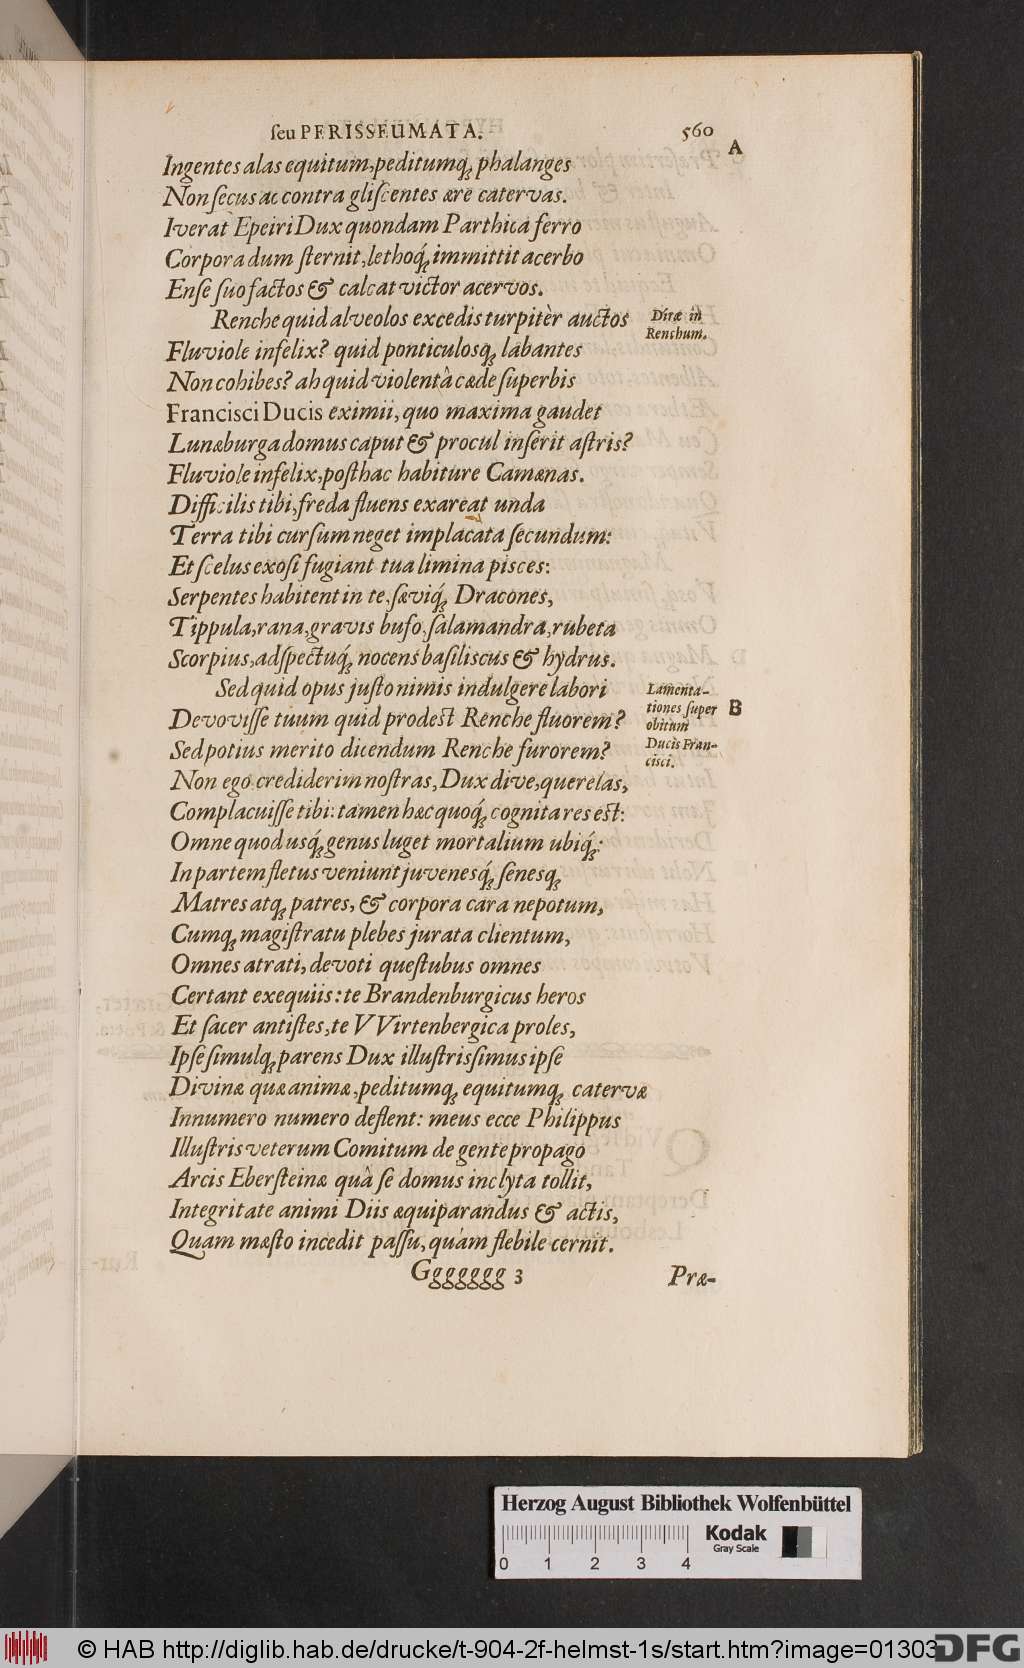 ſeu PERISSEUMATA. 560
A
Ingentes alas equitum, peditumq; phalanges
Non ſecus ac contra gliſcentes ære catervas.
Iverat Epeiri Dux quondam Parthica ferro
Corpora dum ſternit, lethoq́; immittit acerbo
Enſe ſuo factos & calcat victor acervos.
Renche quid alveolos excedis turpitèr auctos
Diræ in
Renchum.
Fluviole infelix? quid ponticulosq; labantes
Non cohibes? ah quid violentâ cæde ſuperbis
Franciſci Ducis eximii, quo maxima gaudet
Lunæburga domus caput & procul inſerit aſtris?
Fluviole infelix, poſthac habiture Camænas.
Difficilis tibi, freda fluens exareat unda
Terra tibi curſum neget implacata ſecundum:
Et ſcelus exoſi fugiant tua limina pisces:
Serpentes habitent in te, ſæviq́; Dracones,
Tippula, rana, gravis bufo, ſalamandra, rubeta
Scorpius, adſpectuq́; nocens baſiliscus & hydrus.
Sed quid opus juſto nimis indulgere labori
Lamenta-
tiones ſuper
obitum
Ducis Fran-
ciſci.
B
Devoviſſe tuum quid prodeſt Renche fluorem?
Sed potius merito dicendum Renche furorem?
Non ego crediderim noſtras, Dux dive, querelas,
Complacuiſſe tibi: tamen hæc quoq́; cognita res eſt:
Omne quod usq́; genus luget mortalium ubiq́;:
In partem fletus veniunt juvenesq́; ſenesq;
Matres atq; patres, & corpora cara nepotum,
Cumq; magiſtratu plebes jurata clientum,
Omnes atrati, devoti queſtubus omnes
Certant exequiis: te Brandenburgicus heros
Et ſacer antiſtes, te VVirtenbergica proles,
Ipſe ſimulq; parens Dux illuſtrisſimus ipſe
Divinæ quæ animæ, peditumq; equitumq; catervæ
Innumero numero deflent: meus ecce Philippus
Illuſtris veterum Comitum de gente propago
Arcis Eberſteinæ quâ ſe domus inclyta tollit,
Integritate animi Diis æquiparandus & actis,
Quam mæſto incedit paſſu, quám flebile cernit.
Ggggggg 3 Præ-
Herzog August Bibliothek Wolfenbüttel
0 1 2 3 4
Kodak
Gray Scale
© HAB http://diglib.hab.de/drucke/t-904-2f-helmst-1s/start.htm?image=01303
DFG